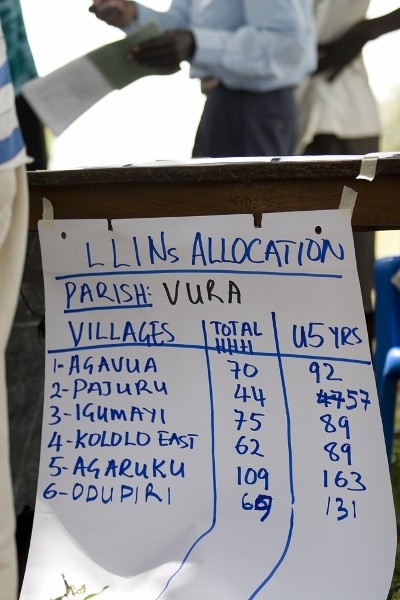 LLINs ALLOCATION
PARISH: VURA
VILLAGES TOTAL HHH U5 YRS
1-AGAVUA 70 92
2-PAJURU 44 57
3-IGUMAYI 75 89
4-KOLOLO EAST 62 89
5-AGARUKU 109 163
6-ODUPIRI 131